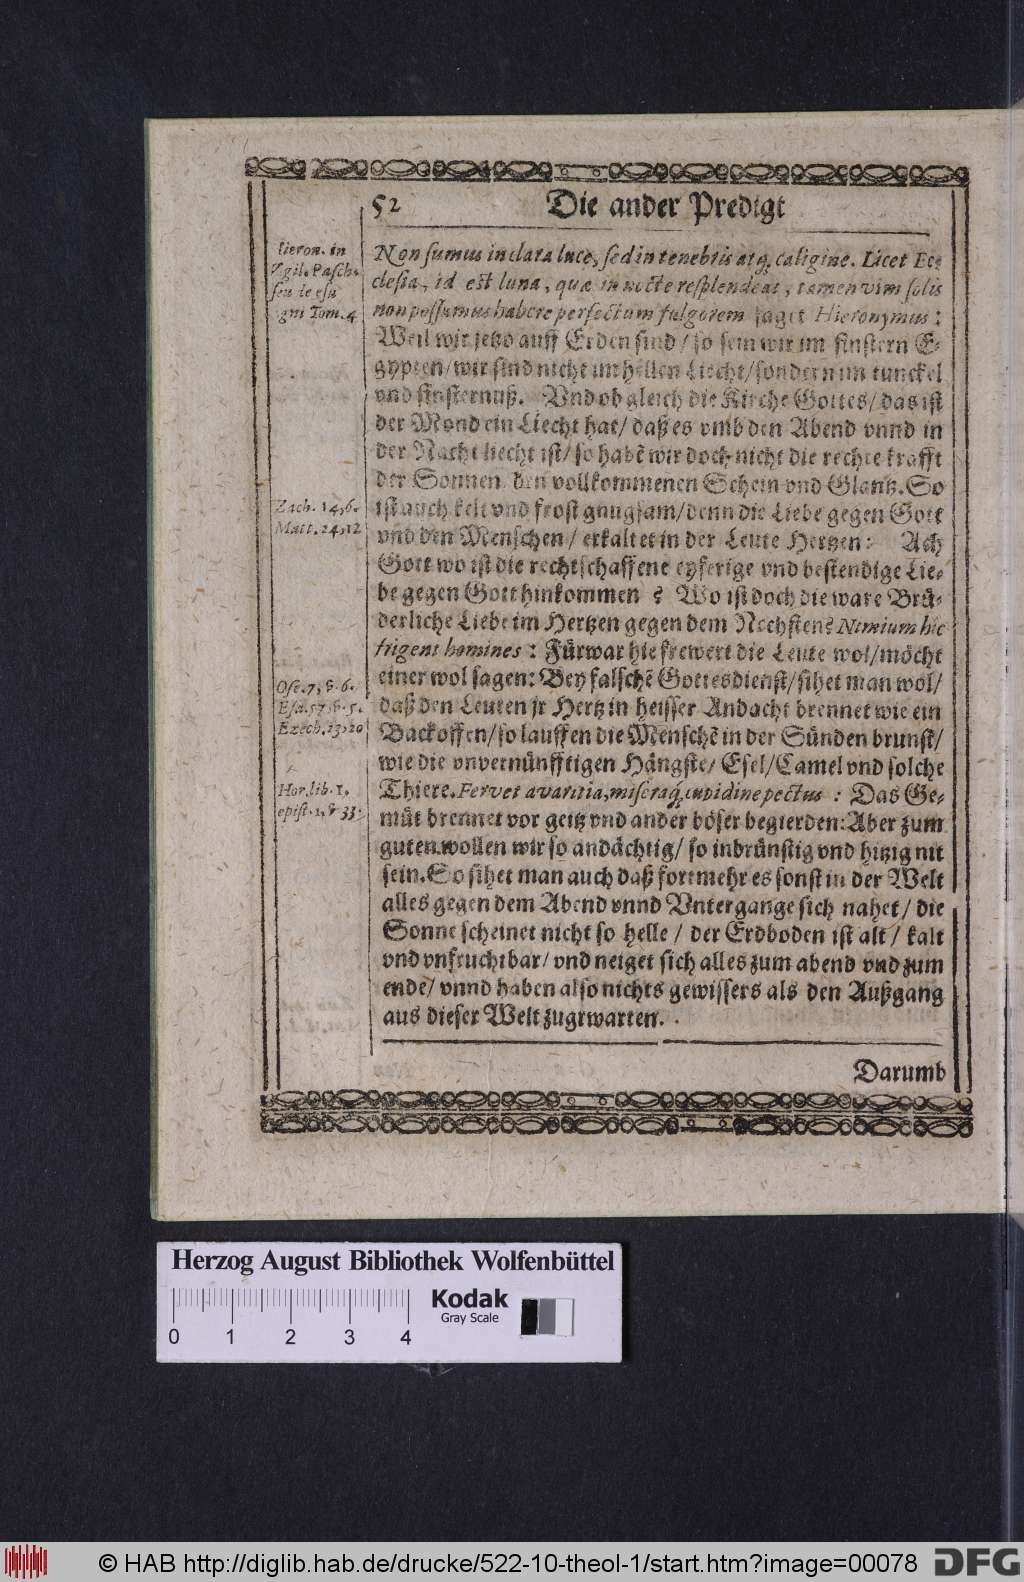 52 Die ander Predigt
Non sumus in clara luce, sed in tenebris atq; caligine. Licet Ec-
clesia, id est luna, quæ in nocte resplendeat, tamen vim solis
non possumus habere perfectum fulgorem saget Hieronymus:
Weil wir jetzo auff Erden sind/ so sein wir im finstern E-
gypten/ wir sind nicht im hellen Liecht/ sondern im tunckel
vnd finsternuß. Vnd ob gleich die Kirche Gottes/ das ist
der Mond ein Liecht hat/ daß es vmb den Abend vnnd in
der Nacht liecht ist/ so habẽ wir doch nicht die rechte krafft
der Sonnen/ den vollkommenen Schein vnd Glantz. So
ist auch kelt vnd frost gnugsam/ denn die Liebe gegen Gott
vnd den Menschen/ erkaltet in der Leute Hertzen: Ach
Gott wo ist die rechtschaffene eyferige vnd bestendige Lie-
be gegen Gott hinkommen? Wo ist doch die ware Brü-
derliche Liebe im Hertzen gegen dem Nechsten? Nimium hic
frigent homines: Fürwar hie frewert die Leute wol/ möcht
einer wol sagen: Bey falschẽ Gottesdienst/ sihet man wol/
daß den Leuten jr Hertz in heisser Andacht brennet wie ein
Backoffen/ so lauffen die Menschẽ in der Sünden brunst/
wie die vnvernünfftigen Hängste/ Esel/ Camel vnd solche
Thiere. Fervet avaritia, miseraq; cupidine pectus: Das Ge-
müt brennet vor geitz vnd ander böser begierden: Aber zum
guten wollen wir so andächtig/ so inbrünstig vnd hitzig nit
sein. So sihet man auch daß fortmehr es sonst in der Welt
alles gegen dem Abend vnnd Vntergange sich nahet/ die
Sonne scheinet nicht so helle/ der Erdboden ist alt/ kalt
vnd vnfruchtbar/ vnd neiget sich alles zum abend vnd zum
ende/ vnnd haben also nichts gewissers als den Außgang
aus dieser Welt zugrwarten.
Darumb
Hieron. in
Vgil. Pasch.
seu de esu
agni Tom. 4.
Zach. 14, 6.
Matt. 24, 12
Ose. 7, ß. 6.
Esa. 57, ß. 5.
Ezech. 23, 20
Hor. lib. 1,
epist. 1, ß 33.
Herzog August Bibliothek Wolfenbüttel
0 1 2 3 4
Kodak
Gray Scale
© HAB http://diglib.hab.de/drucke/522-10-theol-1/start.htm?image=00078
DFG